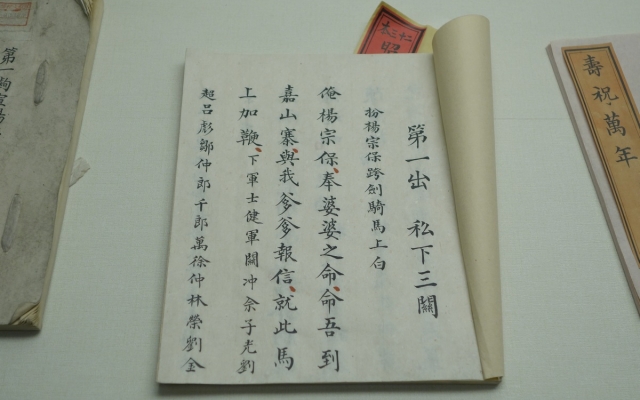 壽祝萬年
第一出 私下三關
扮楊宗保跨劍騎馬上白
俺楊宗保奉婆婆之命命吾到
嘉山寨與我爹爹報信就此馬
上加鞭下軍士健軍關冲佘子光劉
超呂彪鄒仲郎千郎萬徐仲林榮劉金